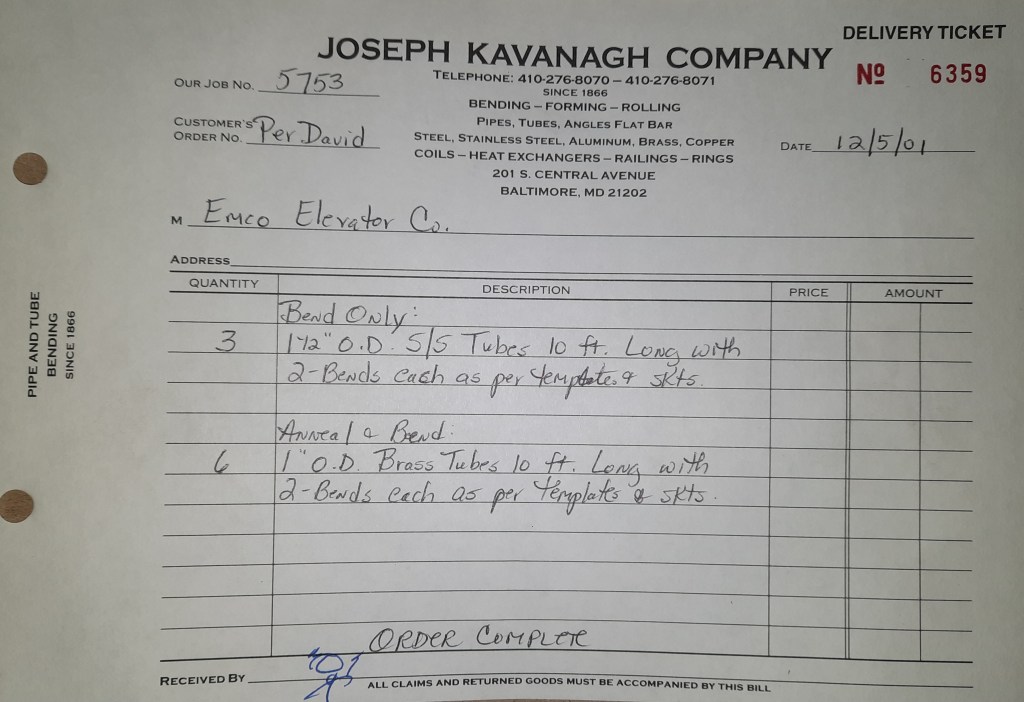 DELIVERY TICKET
JOSEPH KAVANAGH COMPANY
Nº 6359
TELEPHONE: 410-276-8070 – 410-276-8071
SINCE 1866
BENDING – FORMING – ROLLING
PIPES, TUBES, ANGLES FLAT BAR
STEEL, STAINLESS STEEL, ALUMINUM, BRASS, COPPER
COILS – HEAT EXCHANGERS – RAILINGS – RINGS
201 S. CENTRAL AVENUE
BALTIMORE, MD 21202
OUR JOB NO. 5753
CUSTOMER'S
ORDER NO. Per David
DATE 12/5/01
M Emco Elevator Co.
ADDRESS
QUANTITY DESCRIPTION PRICE AMOUNT
Bend Only:
3 1 1/2" O.D. S/S Tubes 10 ft. Long with
2-Bends each as per templates & skts.
Anneal & Bend:
6 1" O.D. Brass Tubes 10 ft. Long with
2-Bends each as per templates & skts.
ORDER COMPLETE
RECEIVED BY
ALL CLAIMS AND RETURNED GOODS MUST BE ACCOMPANIED BY THIS BILL
PIPE AND TUBE
BENDING
SINCE 1866